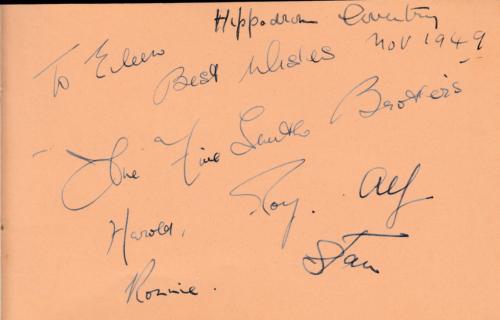 Hippodrome Coventry
Nov 1949
To Eileen
Best Wishes
The Five Smith Brothers
Roy. Alf
Harold, Stan
Ronnie.